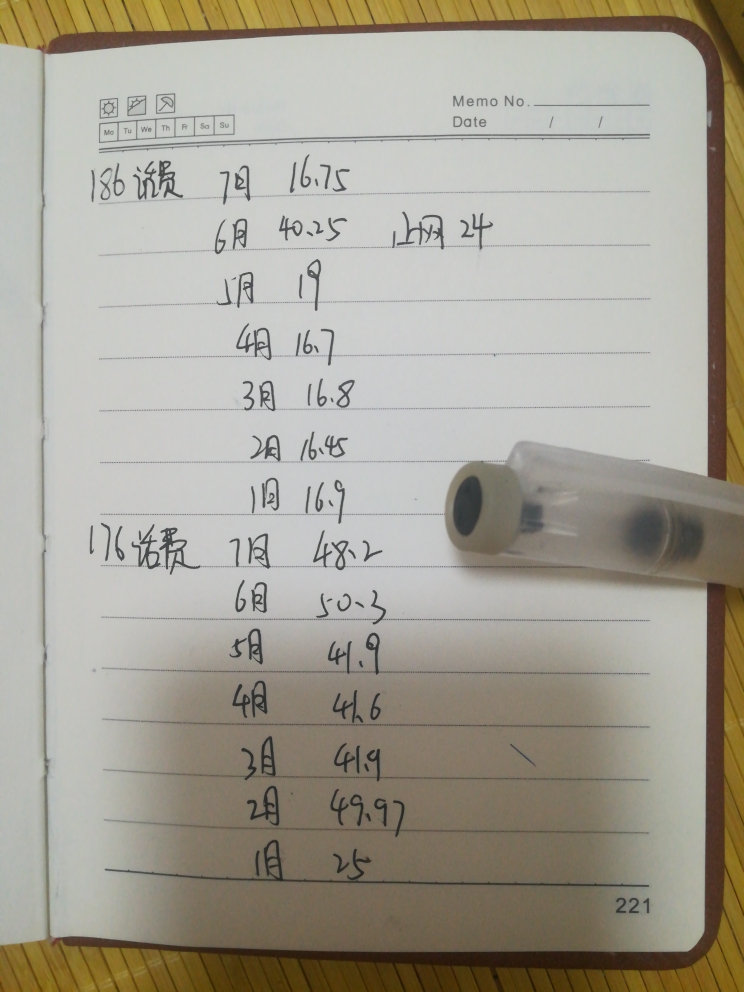 Memo No.
Date / /
Mo Tu We Th Fr Sa Su
186话费 7月 16.75
6月 40.25 上网 24
5月 19
4月 16.7
3月 16.8
2月 16.45
1月 16.9
176话费 7月 48.2
6月 50.3
5月 41.9
4月 41.6
3月 41.9
2月 49.97
1月 25
221